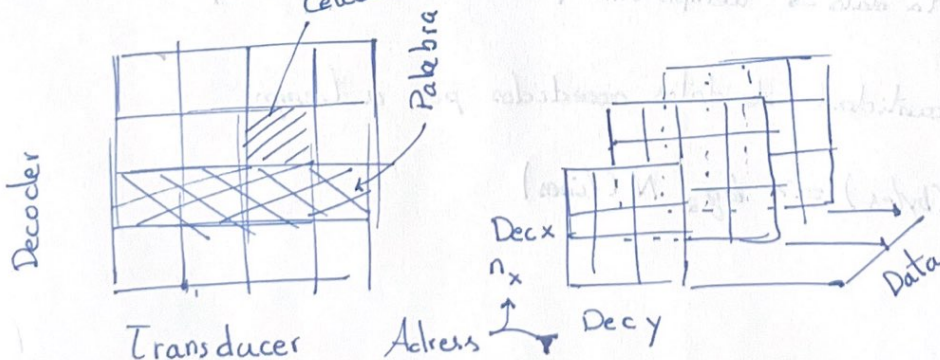 Palabra
Decoder
Transducer
Dec x
n x
Adress
Dec y
Data